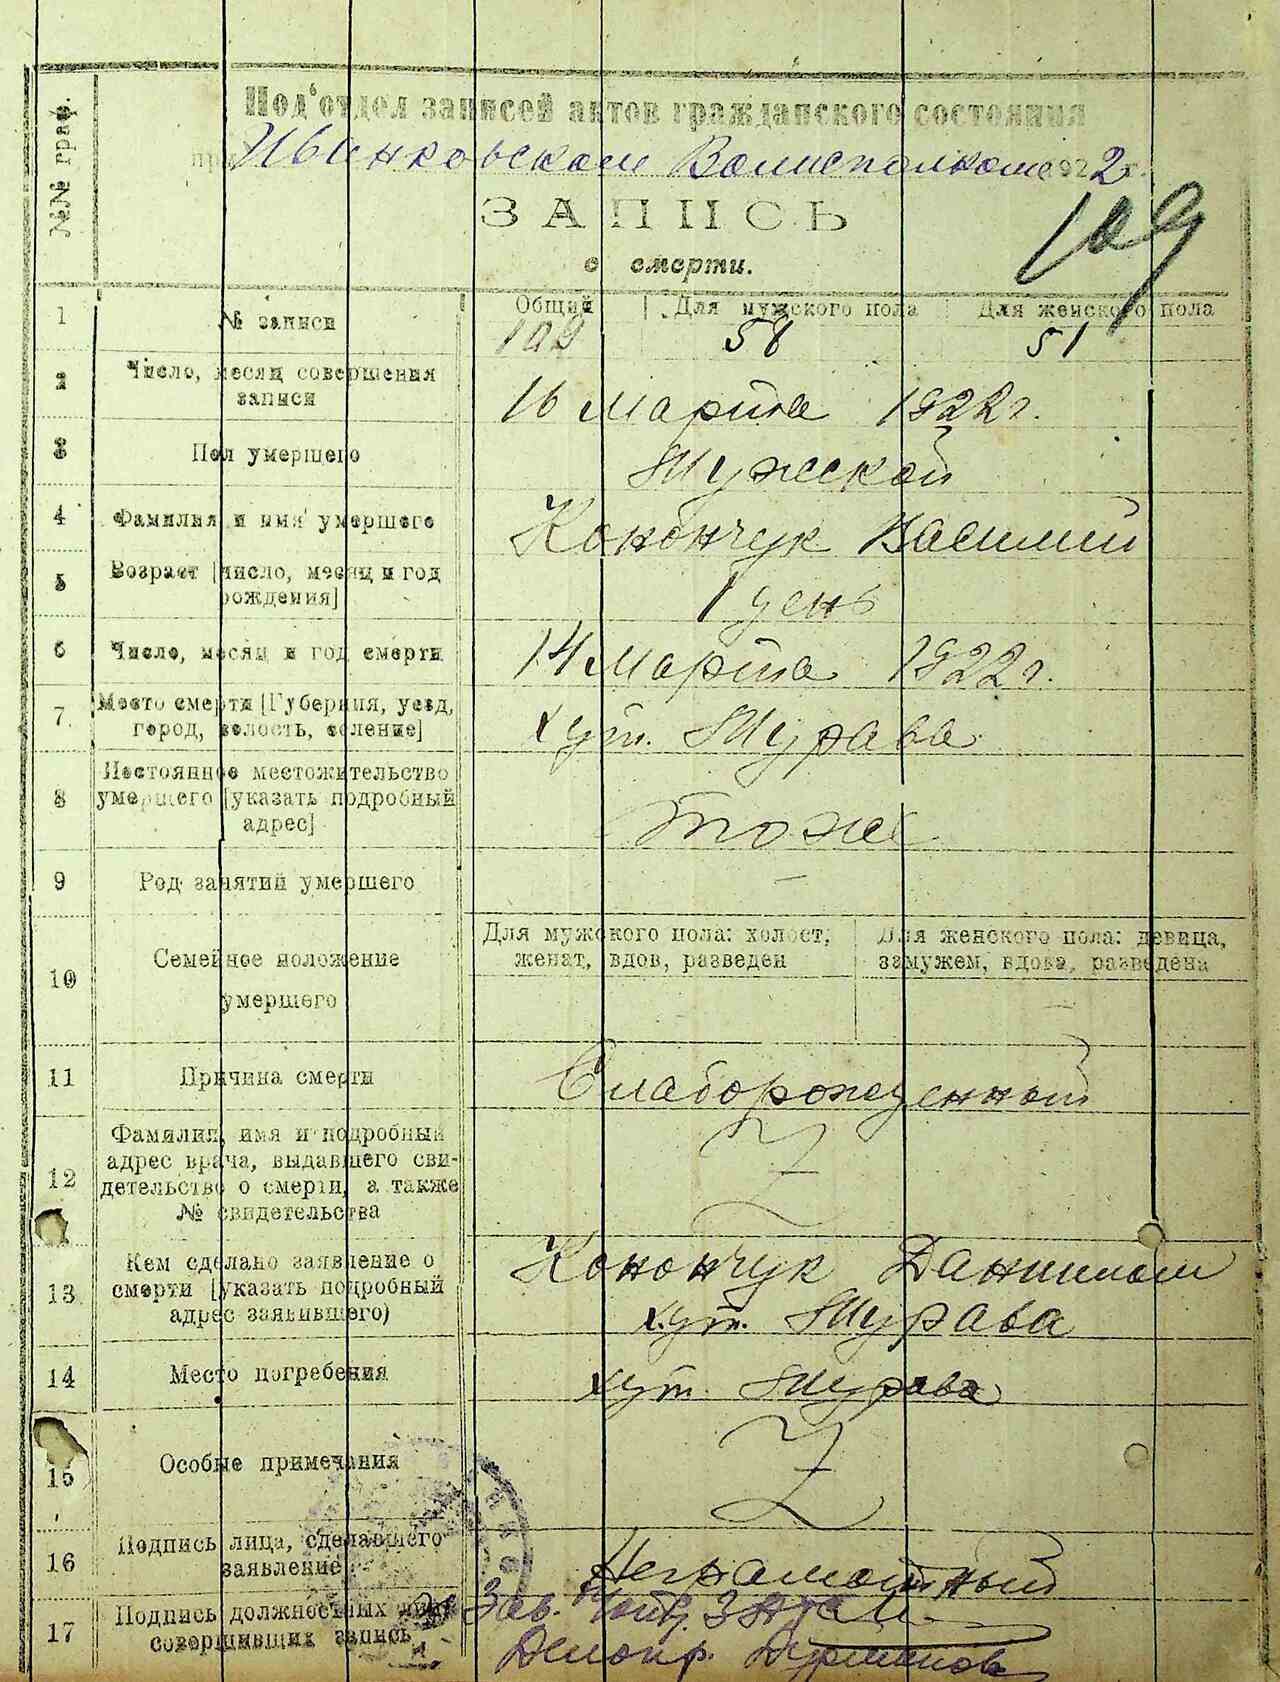 №№ граф.
Под'отдел записей актов гражданского состояния
при Ивенковском Волисполкоме 1922 г.
ЗАПИСЬ
о смерти.
109
1 № записи Общий Для мужского пола Для женского пола
109 58 51
2 Число, месяц совершения
записи
16 Марта 1922 г.
3 Пол умершего Мужской
4 Фамилия и имя умершего Конончук Василий
5 Возраст [число, месяц и год
рождения]
1 день
6 Число, месяц и год смерти 14 Марта 1922 г.
7 Место смерти [Губерния, уезд,
город, волость, селение]
хут. Журава
8 Постоянное местожительство
умершего [указать подробный
адрес]
тоже
9 Род занятий умершего –
10 Семейное положение
умершего
Для мужского пола: холост,
женат, вдов, разведен
Для женского пола: девица,
замужем, вдова, разведена
11 Причина смерти Слаборожденный
12 Фамилия, имя и подробный
адрес врача, выдавшего сви-
детельство о смерти, а также
№ свидетельства
13 Кем сделано заявление о
смерти [указать подробный
адрес заявившего)
Конончук Данилом
хут. Журава
14 Место погребения хут. Журава
15 Особые примечания
16 Подпись лица, сделавшего
заявление
Неграмотный
17 Подпись должностных лиц,
совершивших запись
Зав.
Делопр.